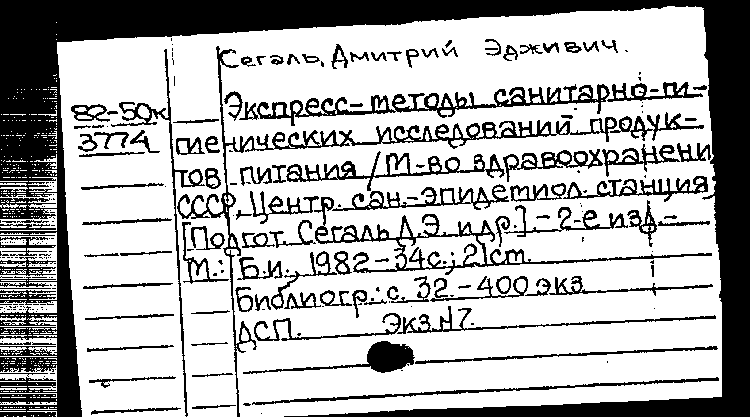 Сегаль, Дмитрий Эдживич.
82-50к Экспресс-методы санитарно-ги-
3774 гиенических исследований продук-
тов питания / М-во здравоохранени
СССР, Центр. сан.-эпидемиол. станция;
[Подгот. Сегаль Д.Э. и др.]. - 2-е изд. -
М.: Б.и., 1982 - 34с.; 21см.
Библиогр.: с. 32 - 400 экз
ДСП. Экз.N7.